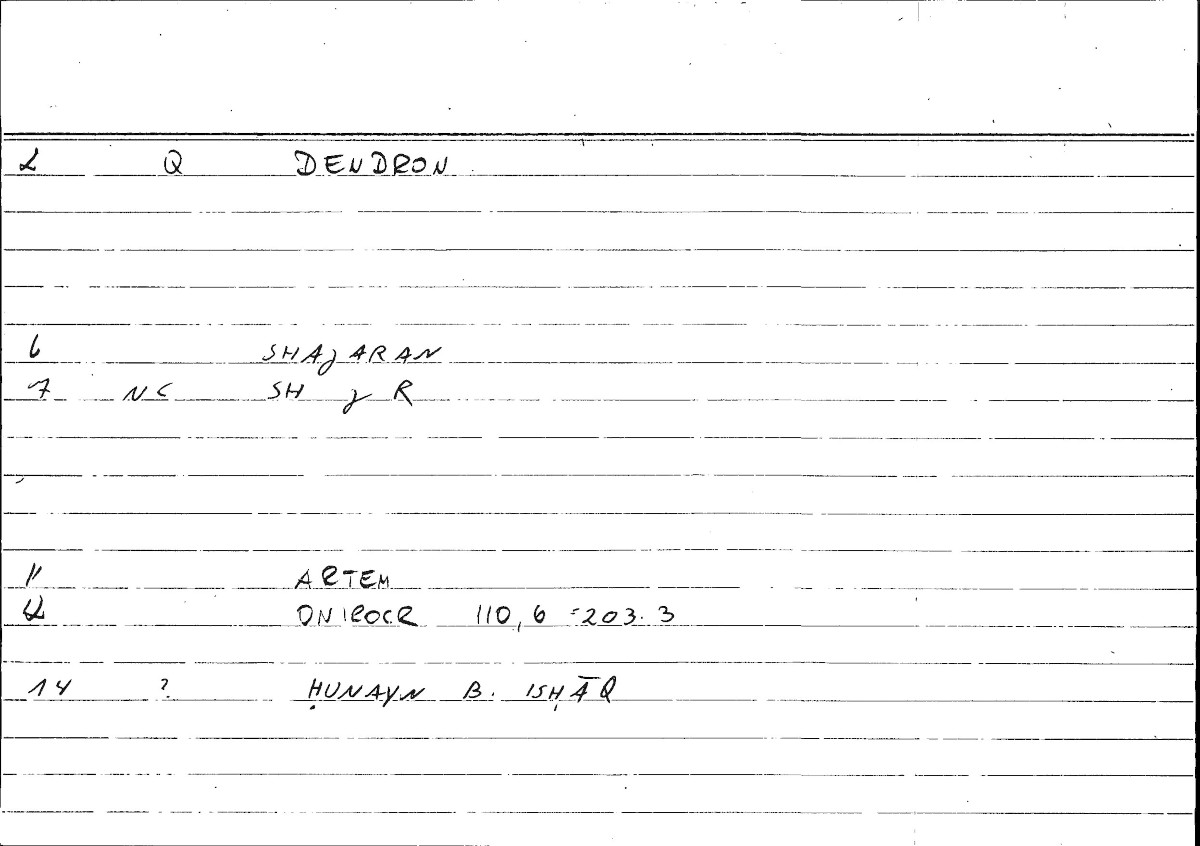 2 Q DENDRON
6 SHAJARAN
7 NC SH J R
11 ARTEM
12 ONIROCR 110,6 = 203.3
14 ? ḤUNAYN B. ISḤĀQ